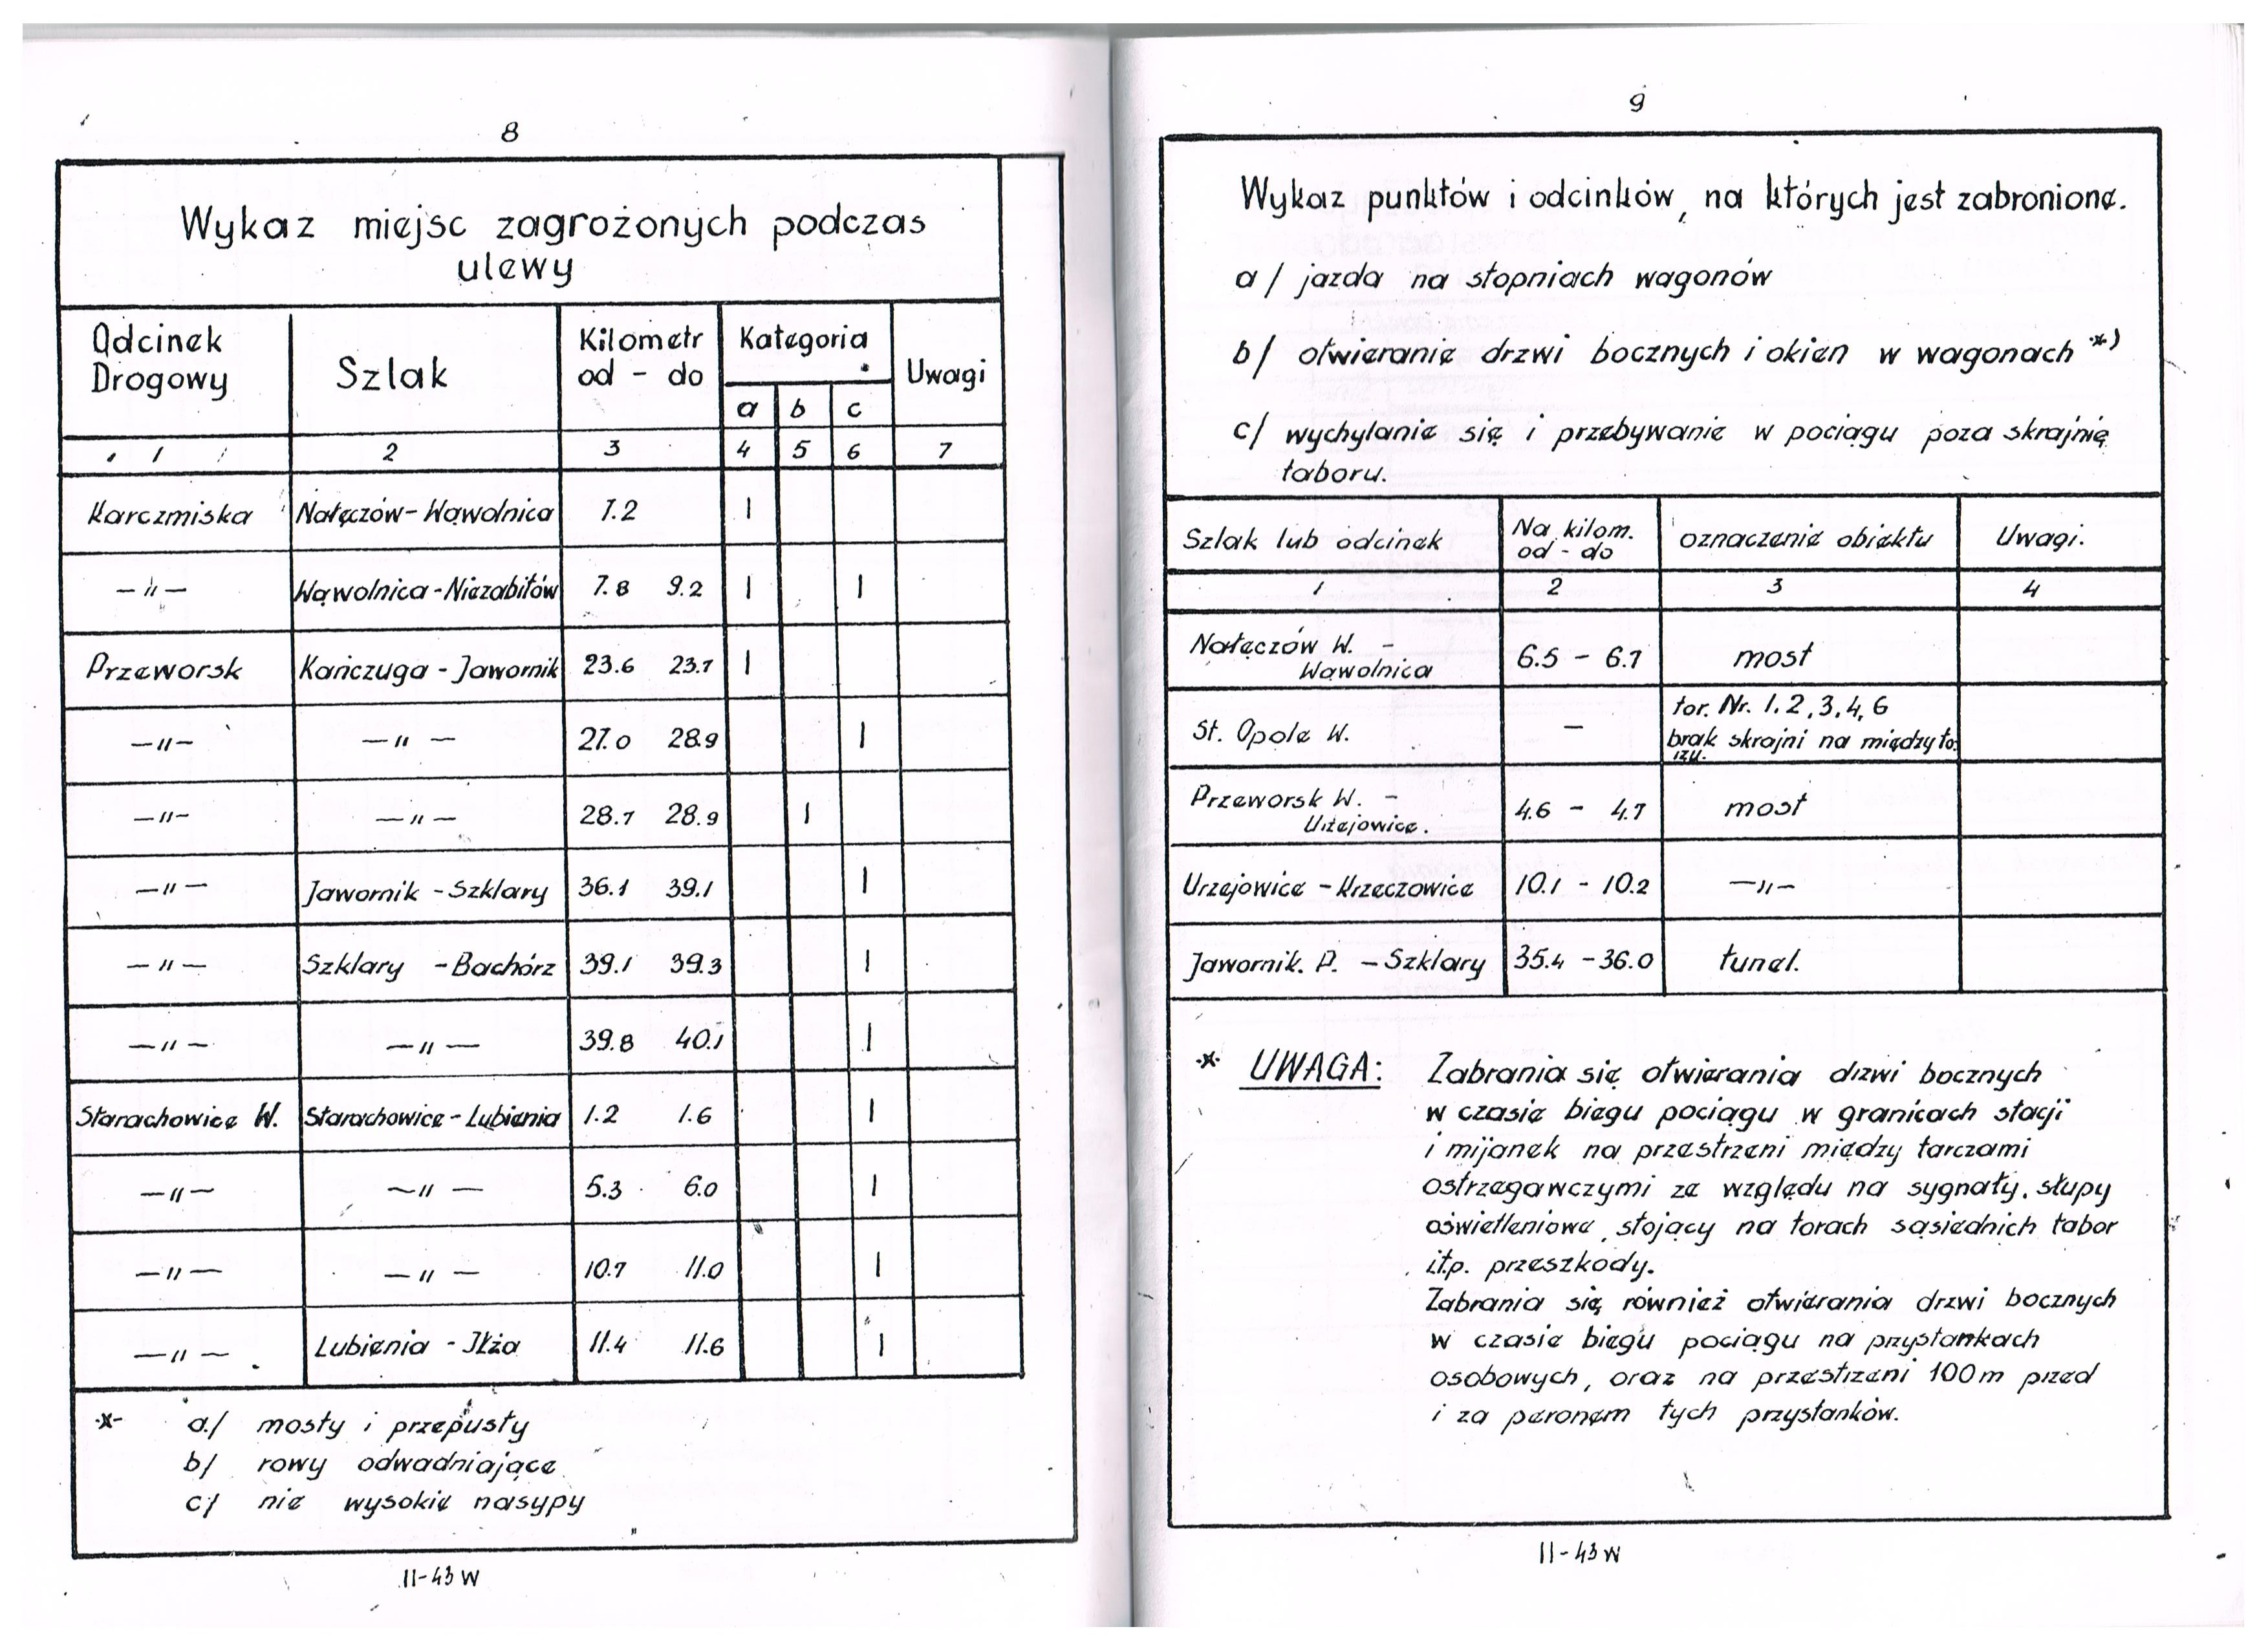 8
Wykaz miejsc zagrożonych podczas
ulewy
Odcinek Drogowy Szlak Kilometr od - do Kategoria Uwagi
a b c
1 2 3 4 5 6 7
Karczmiska Nałęczów - Wąwolnica 7.2 I
—"— Wąwolnica - Niezabitów 7.8 9.2 I I
Przeworsk Kańczuga - Jawornik 23.6 23.7 I
—"— —"— 27.0 28.9 I
—"— —"— 28.7 28.9 I
—"— Jawornik - Szklary 36.1 39.1 I
—"— Szklary - Bachórz 39.1 39.3 I
—"— —"— 39.8 40.1 I
Starachowice W. Starachowice - Lubienia 1.2 1.6 I
—"— —"— 5.3 6.0 I
—"— —"— 10.7 11.0 I
—"— Lubienia - Iłża 11.4 11.6 I
* a/ mosty i przepusty
b/ rowy odwadniające
c/ nie wysokie nasypy
II-43 W
9
Wykaz punktów i odcinków, na których jest zabronione.
a/ jazda na stopniach wagonów
b/ otwieranie drzwi bocznych i okien w wagonach *)
c/ wychylanie się i przebywanie w pociągu poza skrajnię
taboru.
Szlak lub odcinek Na kilom. od - do oznaczenie obiektu Uwagi.
1 2 3 4
Nałęczów W. -
Wąwolnica 6.5 - 6.7 most
St. Opole W. — tor. Nr. 1.2,3,4,6
brak skrajni na międzyto-
rzu.
Przeworsk W. -
Urzejowice. 4.6 - 4.7 most
Urzejowice - Krzeczowice 10.1 - 10.2 —"—
Jawornik. P. - Szklary 35.4 - 36.0 tunel.
* UWAGA: Zabrania się otwierania drzwi bocznych
w czasie biegu pociągu w granicach stacji
i mijanek na przestrzeni między tarczami
ostrzegawczymi ze względu na sygnały, słupy
oświetleniowe, stojący na torach sąsiednich tabor
itp. przeszkody.
Zabrania się również otwierania drzwi bocznych
w czasie biegu pociągu na przystankach
osobowych, oraz na przestrzeni 100m przed
i za peronem tych przystanków.
II-43 W